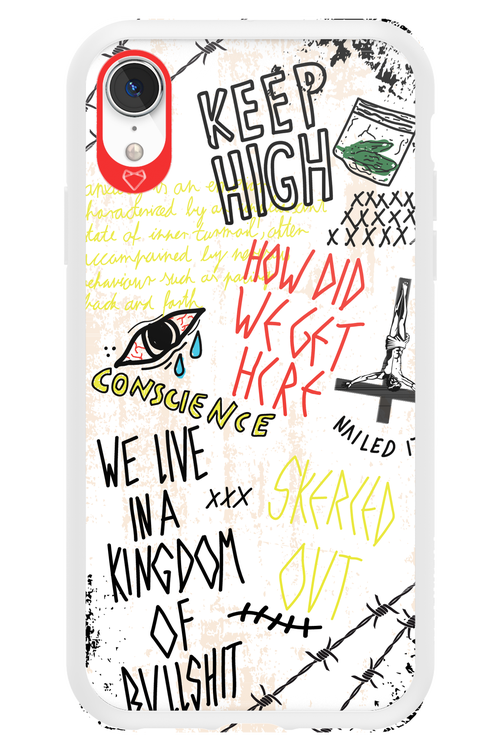 KEEP
HIGH
is an
characterized by an
state of inner turmoil, often
accompanied by
behaviour such as
back and forth
HOW DID
WE GET
HERE
CONSCIENCE
NAILED IT
WE LIVE
IN A
KINGDOM
OF
BULLSHIT
XXX
SKERCED
OUT
XXXXXX
XXXXXX